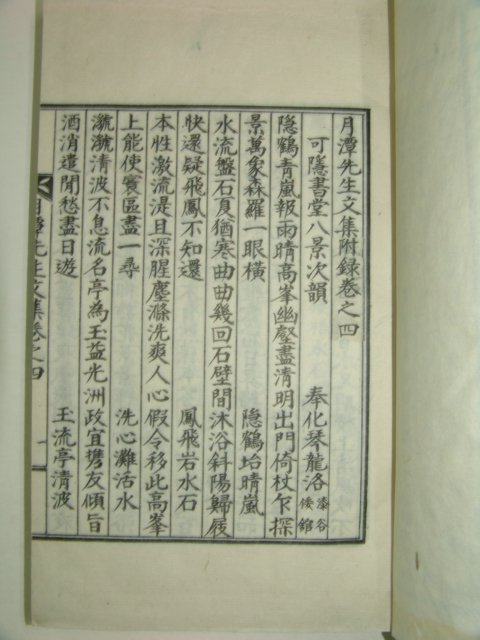 月潭先生文集附錄卷之四
可隱書堂八景次韻 奉化琴龍洛 漆谷倭館
隐鶴青嵐報雨晴高峯幽壑盡清明出門倚杖乍探
景萬象森羅一眼橫 隐鶴坮晴嵐
水流盤石夏猶寒曲曲幾回石壁間沐浴斜陽歸屐
快還疑飛鳳不知還 鳳飛岩水石
本性激流湜且深腥塵滌洗爽人心假令移此高峯
上能使寰區盡一尋 洗心灘活水
虢虢清波不息流名亭為玉益光洲政宜携友傾旨
酒消遣閒愁盡日遊 玉流亭清波
月潭先生文集卷之四 一